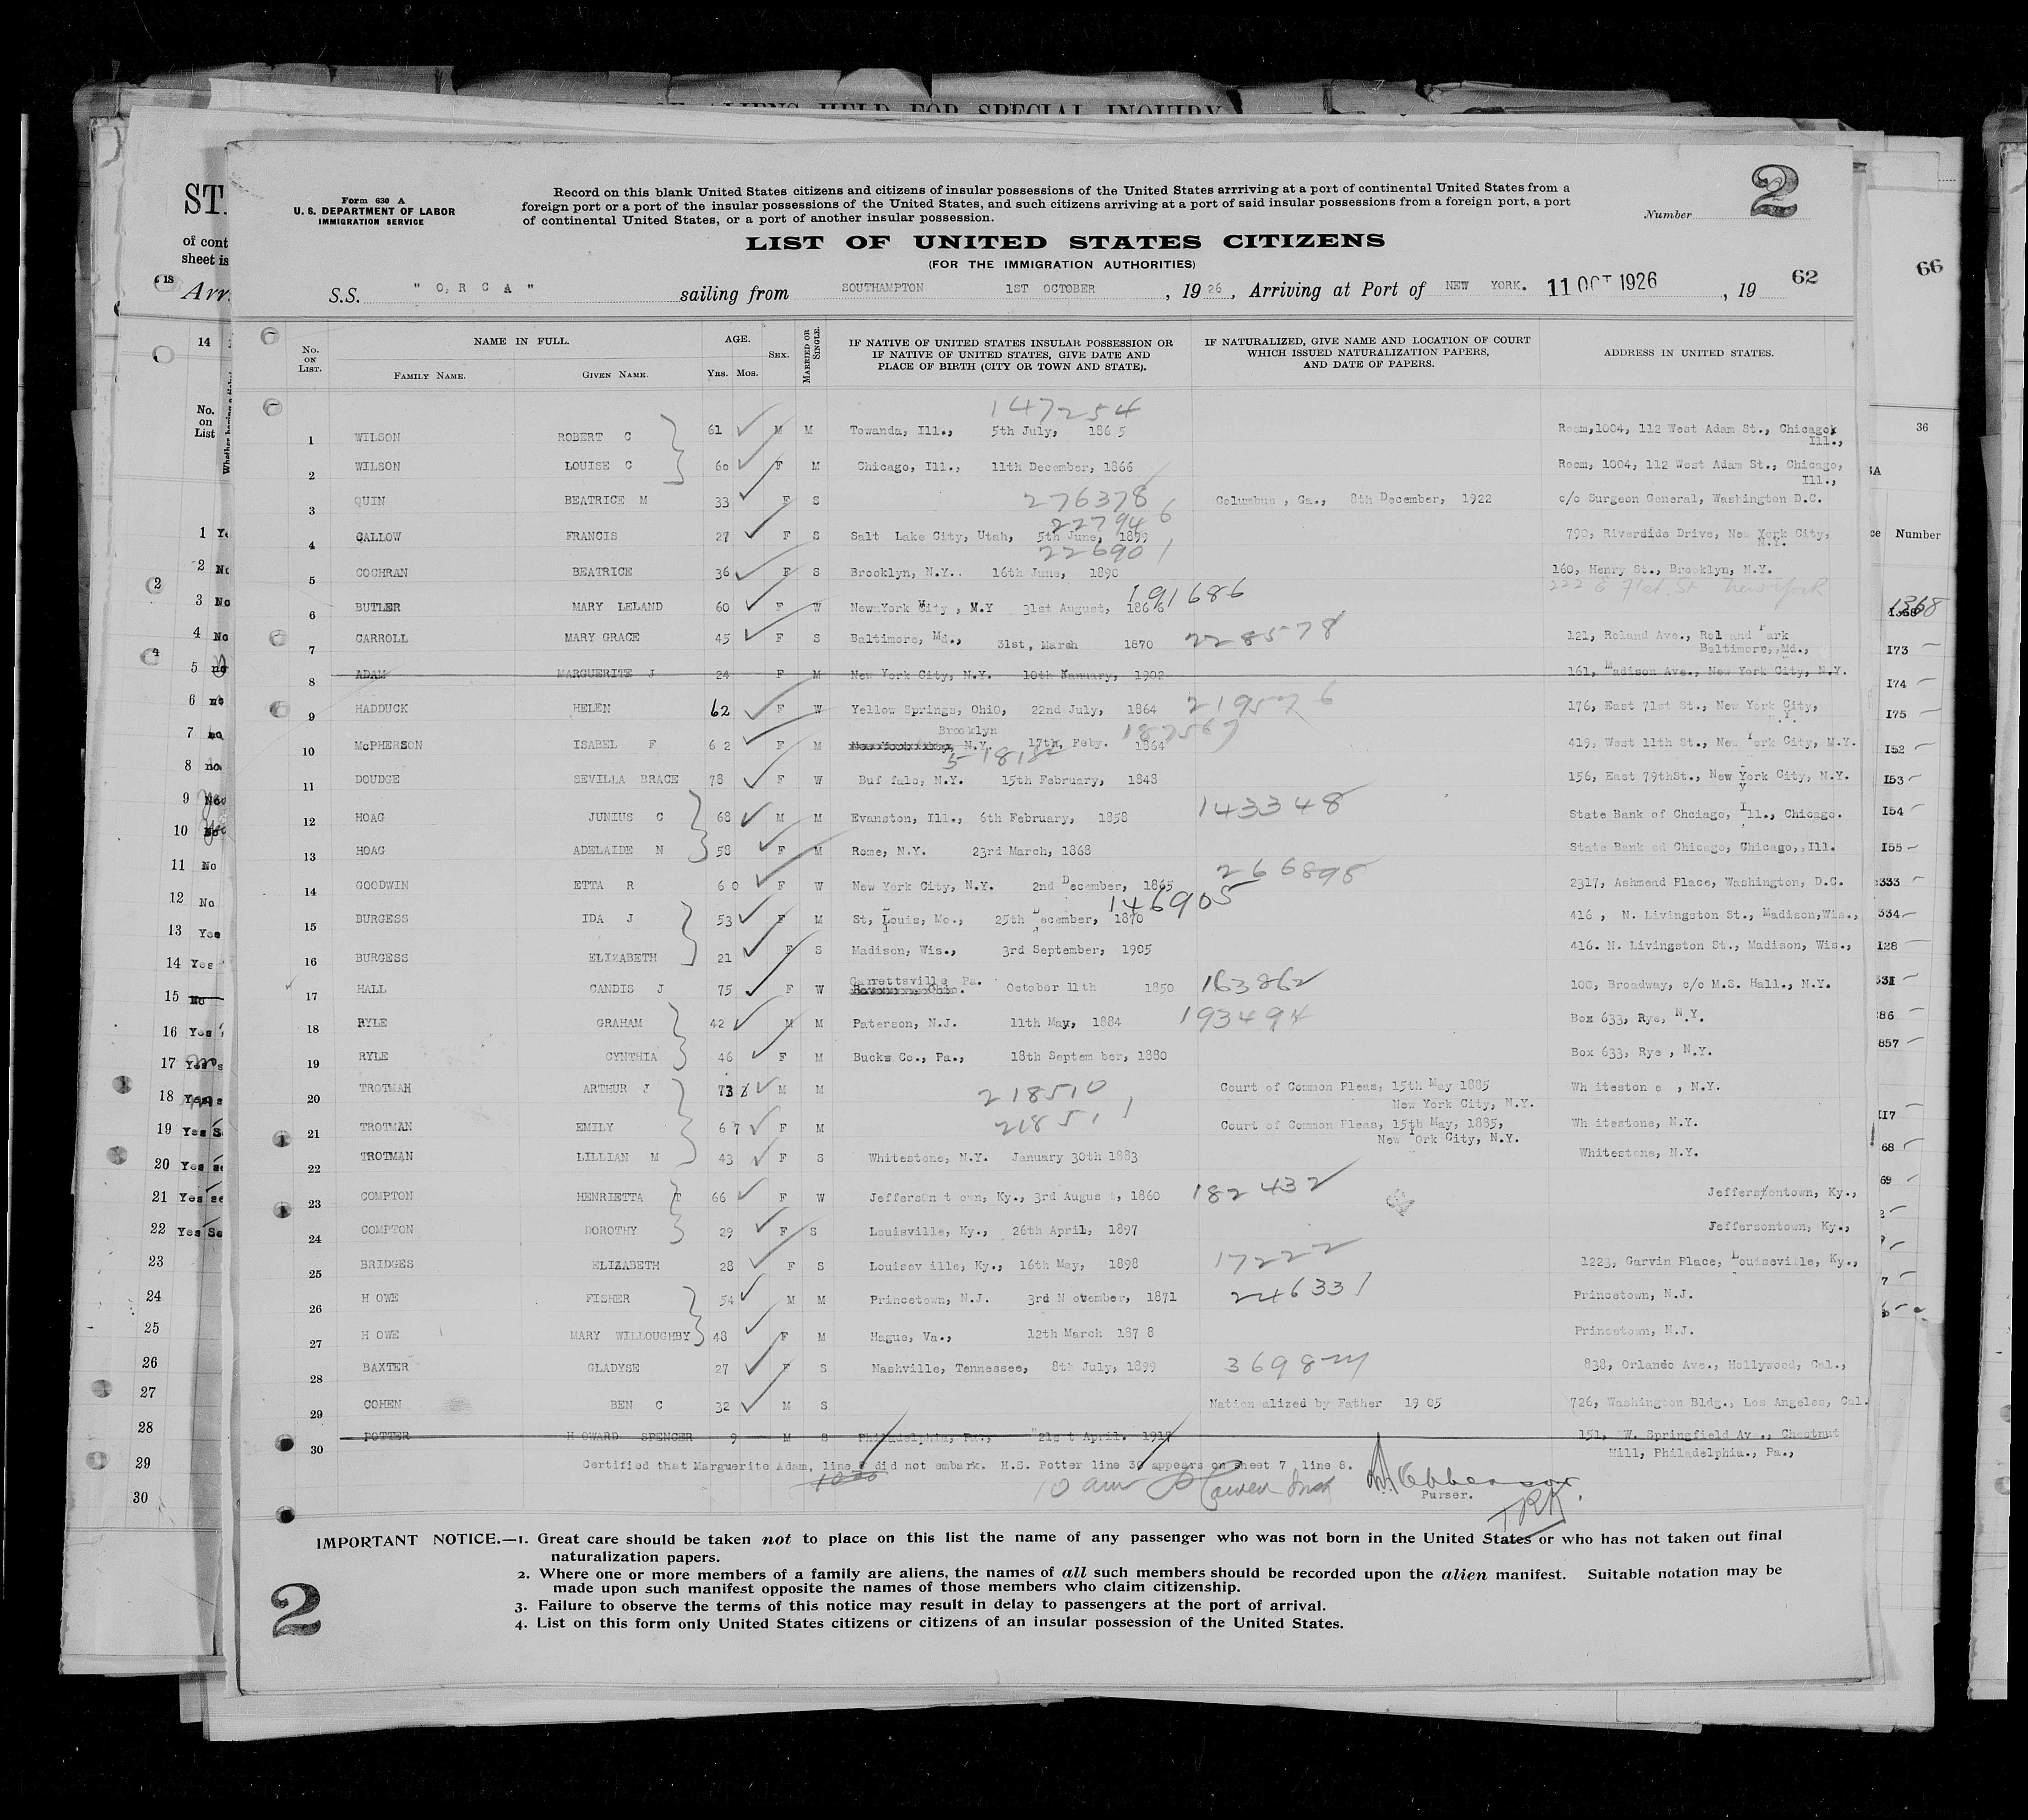 OF ALIENS HELD FOR SPECIAL INQUIRY
Form 630 A
U. S. DEPARTMENT OF LABOR
IMMIGRATION SERVICE
Record on this blank United States citizens and citizens of insular possessions of the United States arrriving at a port of continental United States from a
foreign port or a port of the insular possessions of the United States, and such citizens arriving at a port of said insular possessions from a foreign port, a port
of continental United States, or a port of another insular possession.
Number 2
LIST OF UNITED STATES CITIZENS
(FOR THE IMMIGRATION AUTHORITIES)
S.S. " O, R C A " sailing from SOUTHAMPTON 1ST OCTOBER , 19 26 , Arriving at Port of NEW YORK. 11 OCT 1926 , 19 62
No. ON LIST. NAME IN FULL. FAMILY NAME. GIVEN NAME. AGE. YRS. MOS. SEX. MARRIED OR SINGLE. IF NATIVE OF UNITED STATES INSULAR POSSESSION OR IF NATIVE OF UNITED STATES, GIVE DATE AND PLACE OF BIRTH (CITY OR TOWN AND STATE). IF NATURALIZED, GIVE NAME AND LOCATION OF COURT WHICH ISSUED NATURALIZATION PAPERS, AND DATE OF PAPERS. ADDRESS IN UNITED STATES.
147254
1 WILSON ROBERT C 61 M M Towanda, Ill., 5th July, 186 5 Room,1004, 112 West Adam St., Chicago, Ill.,
2 WILSON LOUISE C 60 F M Chicago, Ill., 11th December, 1866 Room, 1004, 112 West Adam St., Chicago, Ill.,
3 QUIN BEATRICE M 33 F S 276378 Columbus , Ga., 8th December, 1922 c/o Surgeon General, Washington D.C.
227946
4 CALLOW FRANCIS 27 F S Salt Lake City, Utah, 5th June, 1899 790, Riverdide Drive, New York City, N.Y.
226901
5 COCHRAN BEATRICE 36 F S Brooklyn, N.Y.. 16th June, 1890 160, Henry St., Brooklyn, N.Y.
222 E 71st. St New York
191686
6 BUTLER MARY LELAND 60 F W NewnYork City , N.Y 31st August, 186 6
7 CARROLL MARY GRACE 45 F S Baltimore, Md., 31st, March 1870 228578 121, Roland Ave., Rol and Park Baltimore,,Md.,
8 ADAM MARGUERITE J 24 F M New York City, N.Y. 10th January, 1902 161, Madison Ave., New York City, N.Y.
9 HADDUCK HELEN 62 F W Yellow Springs, Ohio, 22nd July, 1864 176, East 71st St., New York City, N.Y.
Brooklyn 187567
10 McPHERSON ISABEL F 6 2 F M N.Y. 17th, Feby. 1864 419, West 11th St., New York City, N.Y.
11 DOUDGE SEVILLA BRACE 78 F W Buf falo, N.Y. 15th February, 1848 156, East 79thSt., New York City, N.Y.
12 HOAG JUNIUS C 68 M M Evanston, Ill., 6th February, 1858 143348 State Bank of Chciago, Ill., Chicago.
13 HOAG ADELAIDE N 58 F M Rome, N.Y. 23rd March, 1868 State Bank od Chicago, Chicago,,Ill.
14 GOODWIN ETTA R 6 0 F W New York City, N.Y. 2nd December, 1865 266898 2317, Ashmead Place, Washington, D.C.
146905
15 BURGESS IDA J 53 F M St, Louis, Mo., 25th December, 1870 416 , N. Livingston St., Madison,Wis.,
16 BURGESS ELIZABETH 21 F S Madison, Wis., 3rd September, 1905 416. N. Livingston St., Madison, Wis.,
Garrettsville Pa.
17 HALL CANDIS J 75 F W October 11th 1850 163262 100, Broadway, c/o M.S. Hall., N.Y.
18 RYLE GRAHAM 42 M M Paterson, N.J. 11th May, 1884 193494 Box 633, Rye, N.Y.
19 RYLE CYNTHIA 46 F M Bucks Co., Pa., 18th Septem ber, 1880 Box 633, Rye , N.Y.
20 TROTMAN ARTHUR J 73 M M 218510 Court of Common Pleas, 15th May 1885 New York City, N.Y. Wh iteston e , N.Y.
21 TROTMAN EMILY 6 7 F M 218511 Court of Common Pleas, 15th May, 1885, New York City, N.Y. Wh itestone, N.Y.
22 TROTMAN LILLIAN M 43 F S Whitestone, N.Y. January 30th 1883 Whitestone, N.Y.
23 COMPTON HENRIETTA T 66 F W Jefferson t own, Ky., 3rd Augus t, 1860 182432 Jeffersontown, Ky.,
24 COMPTON DOROTHY 29 F S Louisville, Ky., 26th April, 1897 Jeffersontown, Ky.,
25 BRIDGES ELIZABETH 28 F S Louisev ille, Ky., 16th May, 1898 17222 1223, Garvin Place, Louiseville, Ky.,
26 H OWE FISHER 54 M M Princetown, N.J. 3rd N ovember, 1871 246331 Princetown, N.J.
27 H OWE MARY WILLOUGHBY 48 F M Hague, Va., 12th March 187 8 Princetown, N.J.
28 BAXTER GLADYSE 27 F S Nashville, Tennessee, 8th July, 1899 838, Orlando Ave., Hollywood, Cal.,
29 COHEN BEN C 32 M S Nation alized by Father 19 05 726, Washington Bldg., Los Angeles, Cal.
30 POTTER H OWARD SPENCER 9 M S Philadelphia, Pa., 21s t April. 1917 151, W. Springfield Av ., Chestnut Hill, Philadelphia., Pa.,
Certified that Marguerite Adam, line 8 did not embark. H.S. Potter line 30 appears on sheet 7 line 8.
10 am
Purser.
TRK
IMPORTANT NOTICE.—1. Great care should be taken not to place on this list the name of any passenger who was not born in the United States or who has not taken out final
naturalization papers.
2. Where one or more members of a family are aliens, the names of all such members should be recorded upon the alien manifest. Suitable notation may be
made upon such manifest opposite the names of those members who claim citizenship.
3. Failure to observe the terms of this notice may result in delay to passengers at the port of arrival.
4. List on this form only United States citizens or citizens of an insular possession of the United States.
2